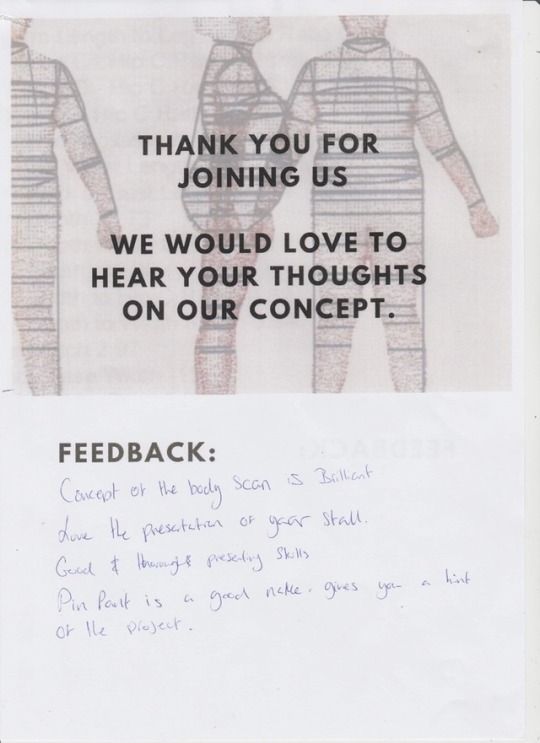 THANK YOU FOR
JOINING US
WE WOULD LOVE TO
HEAR YOUR THOUGHTS
ON OUR CONCEPT.
FEEDBACK:
Concept of the body scan is Brilliant
Love the presentation of your stall.
Good & thorough presenting skills
Pin Point is a good name. gives you a hint
of the project.